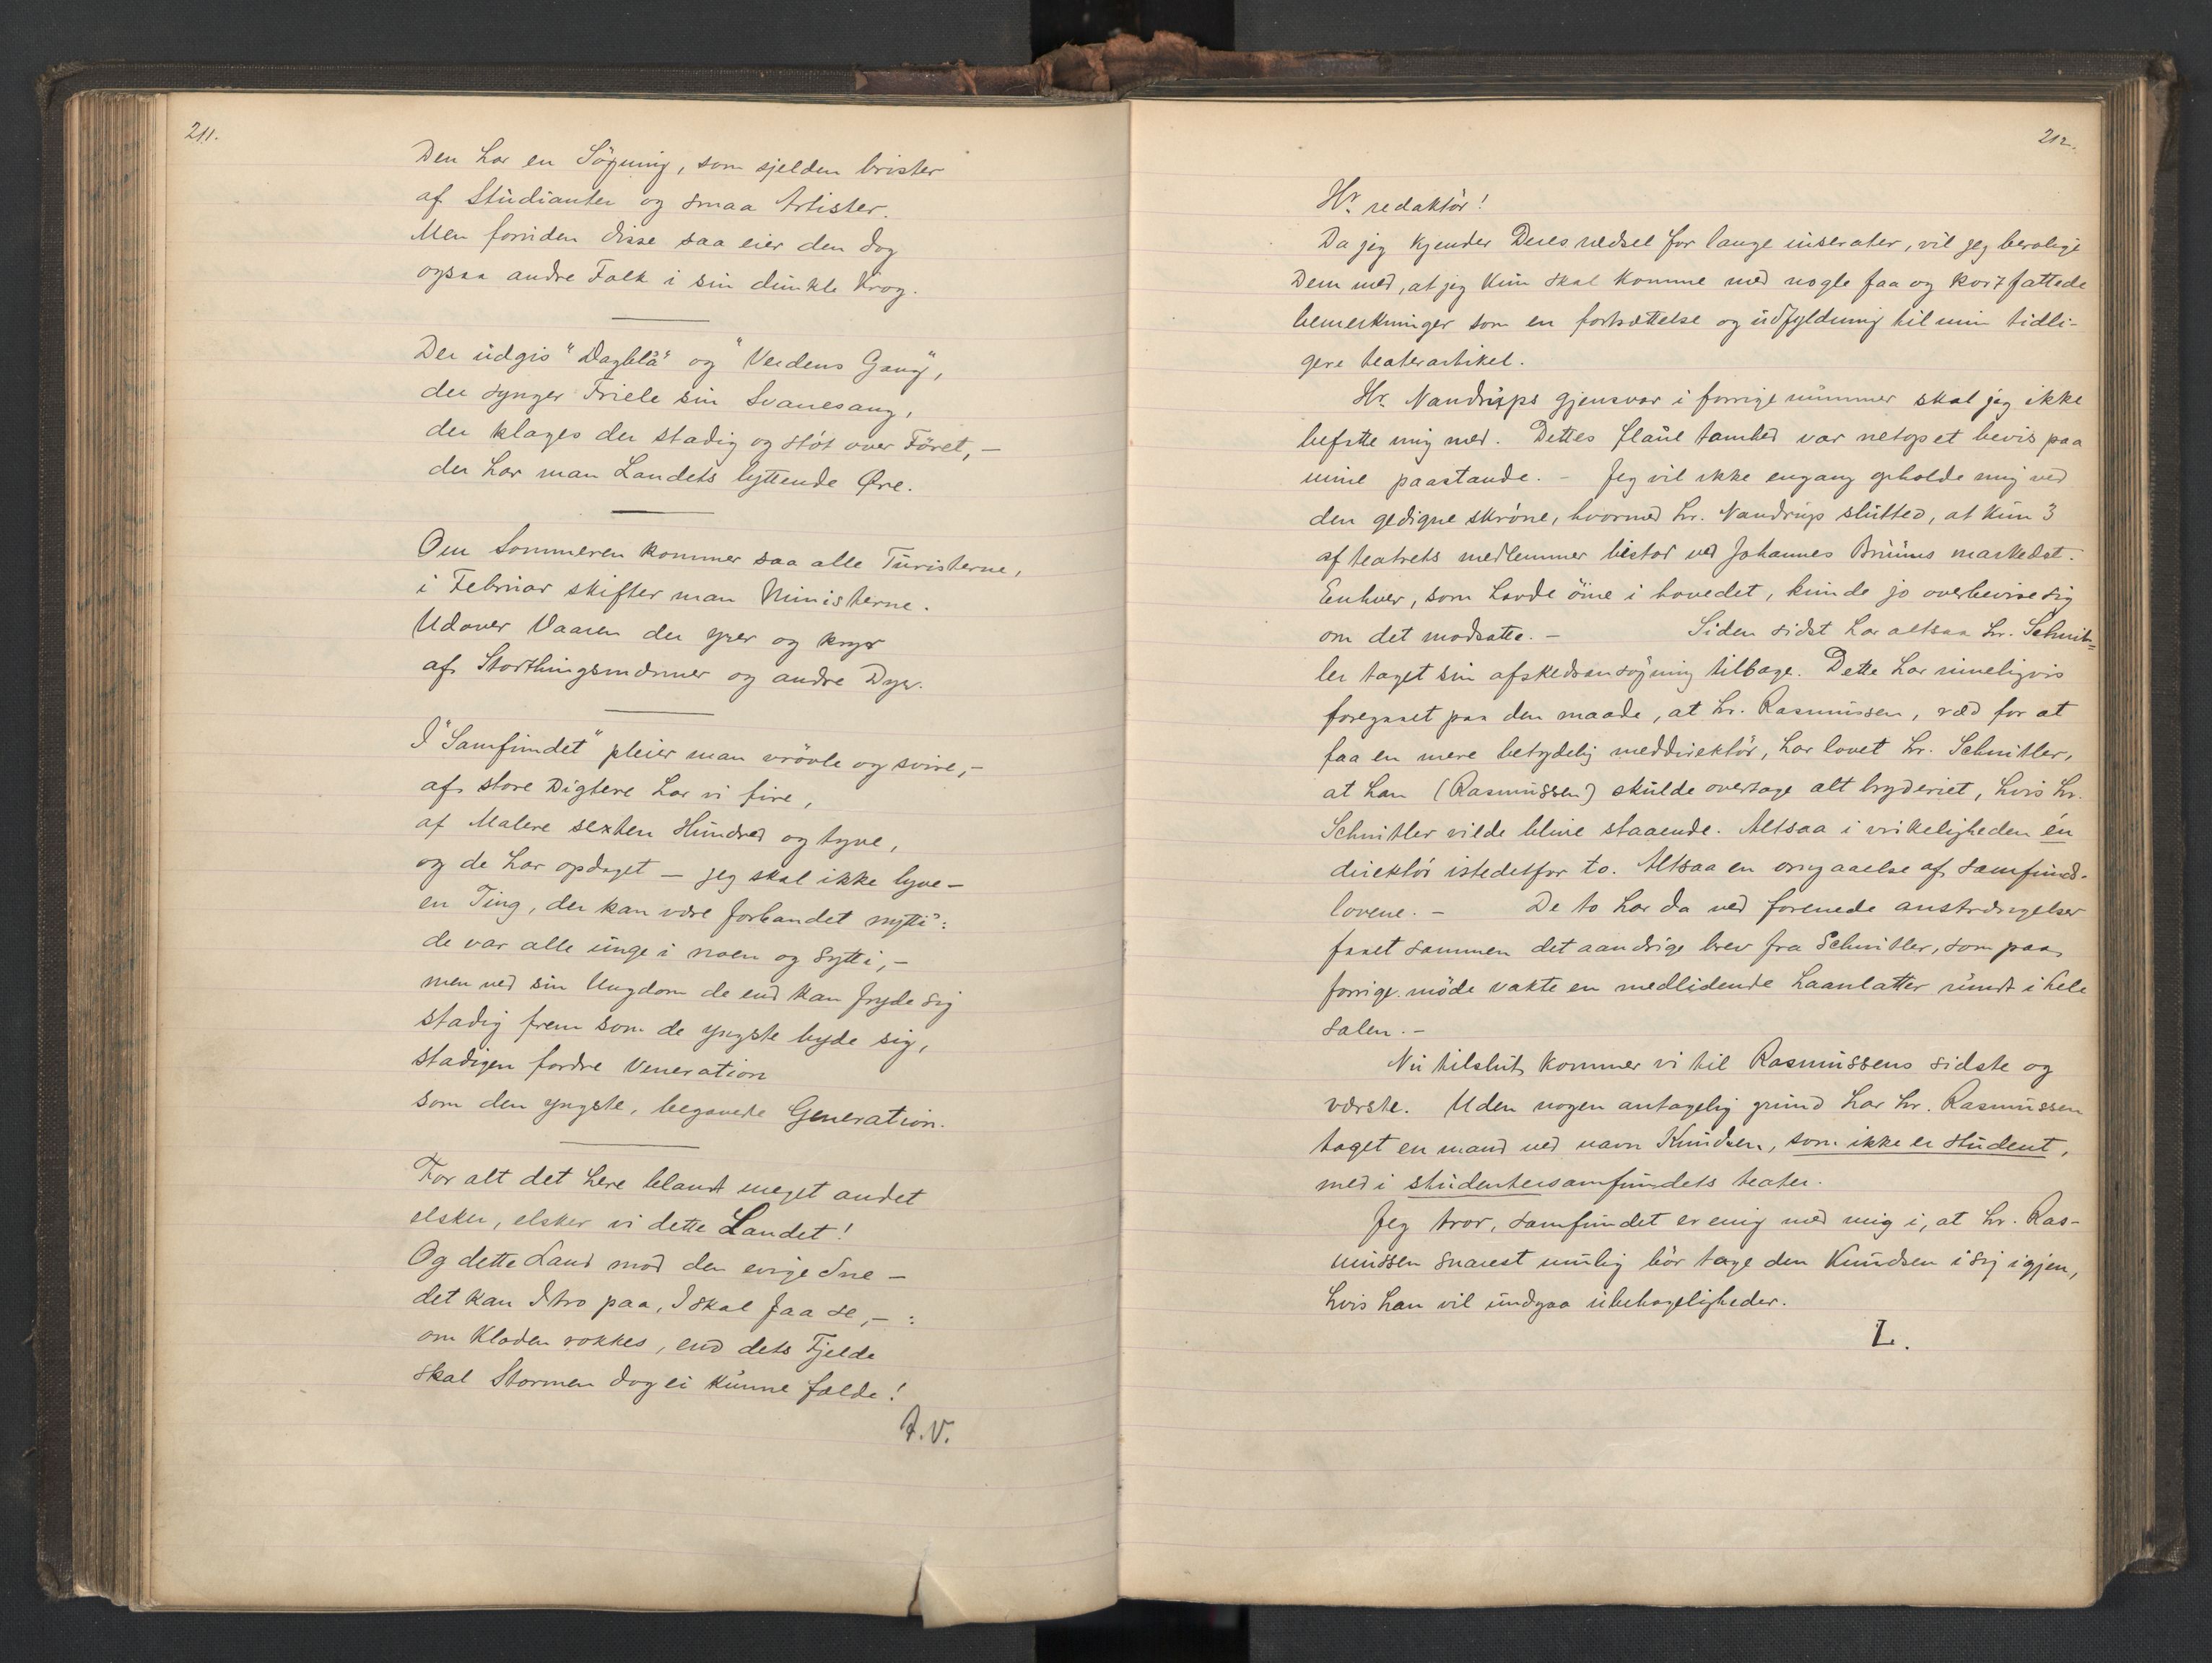 211.
Den har en Søgning, som sjelden brister
af Studianter og smaa Artister.
Men foruden disse saa eier den dog
ogsaa andre Folk i sin dunkle Krog.
Der udgis "Dagblà" og "Verdens Gang",
der synger Friele sin Svanesang,
der klages der stadig og støt over Føret, –
der har man Landets lyttende Øre.
Om Sommeren kommer saa alle Turisterne,
i Februar skifter man Ministerne.
Udover Vaaren der yrer og kryr
af Storthingsmænner og andre Dyr.
I "Samfundet" pleier man vrøvle og svire, –
af store Digtere har vi fire,
af Malere sexten Hundred og tyve,
og de har opdaget – jeg skal ikke lyve –
en Ting, der kan være forbandet nytti':
de var alle unge i noen og sytti, –
men ved sin Ungdom de end kan fryde sig
stadig frem som de yngste byde sig,
stadigen fordre Veneration
som den yngste, begavede Generation.
For alt det here blandt meget andet
elsker, elsker vi dette Landet!
Og dette Land mod den evige Sne –
det kan I tro paa, I skal faa se, – :
om Kloden rokkes, end dets Fjelde
skal Stormen dog ei kunne fælde!
A.V.
212.
Hr. redaktør!
Da jeg kjender Deres rædsel for lange inserater, vil jeg berolige
Dem med, at jeg kun skal komme med nogle faa og kortfattede
bemerkninger som en fortsættelse og udfyldning til min tidli-
gere teaterartikel.
Hr. Nandrups gjensvar i forrige nummer skal jeg ikke
befatte mig med. Dettes flaue tamhed var netop et bevis paa
mine paastande. – Jeg vil ikke engang opholde mig ved
den gedigne skrøne, hvormed hr. Nandrup slutted, at kun 3
af teatrets medlemmer bistod ved Johannes Bruuns markedst.
Enhver, som havde øine i hovedet, kunde jo overbevise sig
om det modsatte. – Siden sidst har altsaa hr. Schnit-
ler taget sin afskedsansøgning tilbage. Dette har rimeligvis
foregaaet paa den maade, at hr. Rasmussen, ræd for at
faa en mere betydelig meddirektør, har lovet hr. Schnitler,
at han (Rasmussen) skulde overtage alt bryderiet, hvis hr.
Schnitler vilde blive staaende. Altsaa i virkeligheden én
direktør istedetfor to. Altsaa en omgaaelse af samfunds-
lovene. – De to har da ved forenede anstrængelser
faaet sammen det aandrige brev fra Schnitler, som paa
forrige møde vakte en medlidende haanlatter rundt i hele
salen. –
Nu tilslut kommer vi til Rasmussens sidste og
værste. Uden nogen antagelig grund har hr. Rasmussen
taget en mand ved navn Knudsen, som ikke er student,
med i studentersamfundets teater.
Jeg tror, samfundet er enig med mig i, at hr. Ras-
mussen snarest mulig bør tage den Knudsen i sig igjen,
hvis han vil undgaa ubehageligheder.
L.